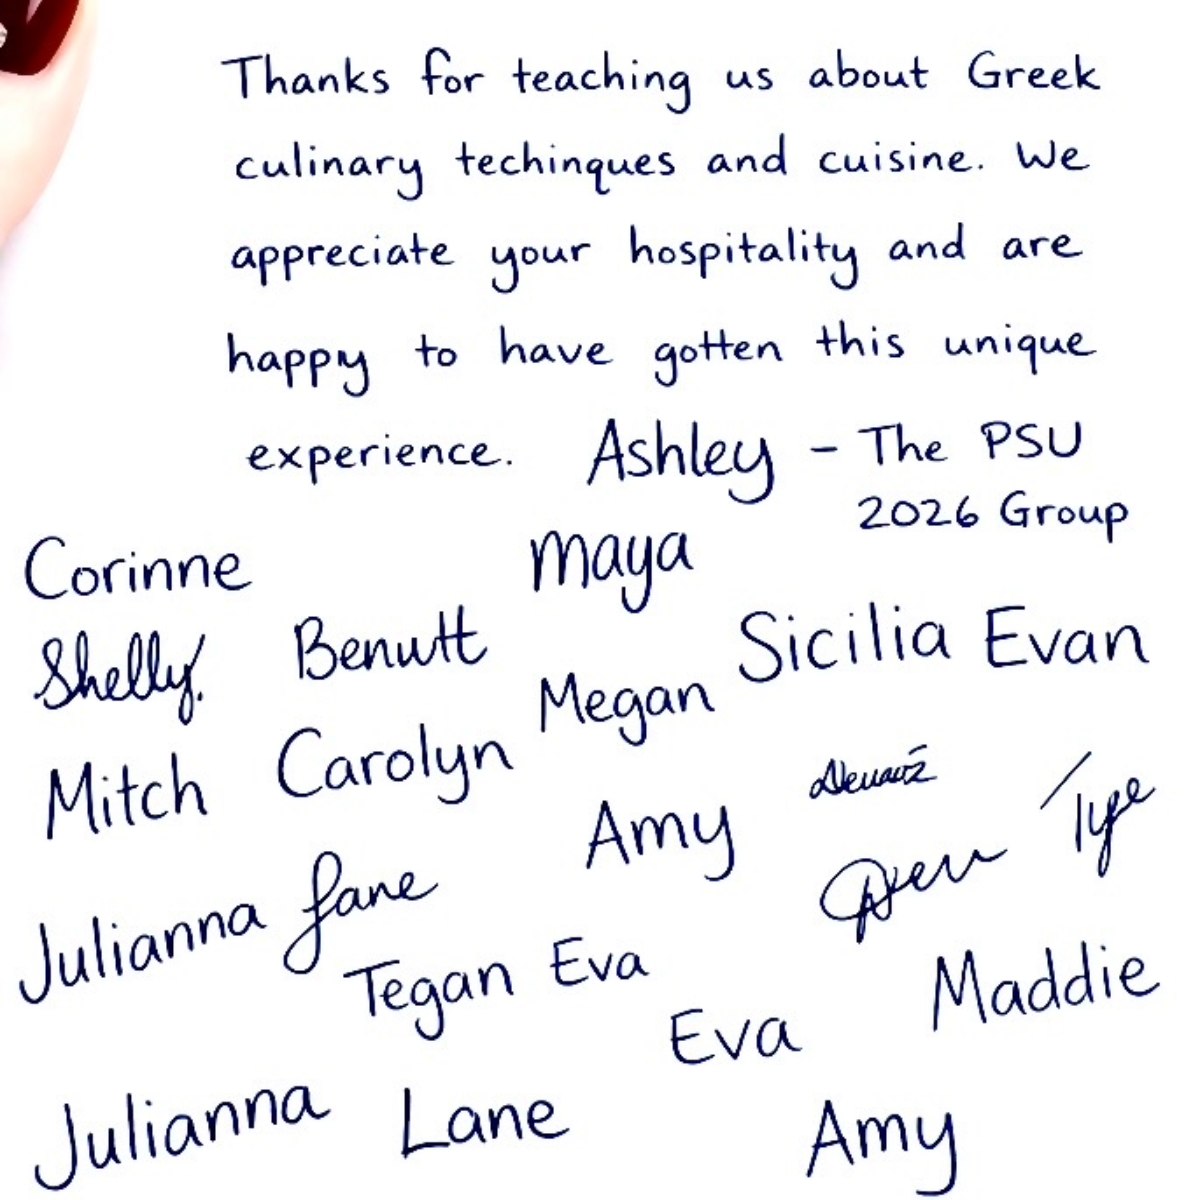 Thanks for teaching us about Greek
culinary techinques and cuisine. We
appreciate your hospitality and are
happy to have gotten this unique
experience. Ashley – The PSU
2026 Group
Corinne
maya
Shelly.
Benutt
Sicilia Evan
Megan
Mitch
Carolyn
Amy
Julianna
Tegan Eva
Maddie
Eva
Julianna
Lane
Amy